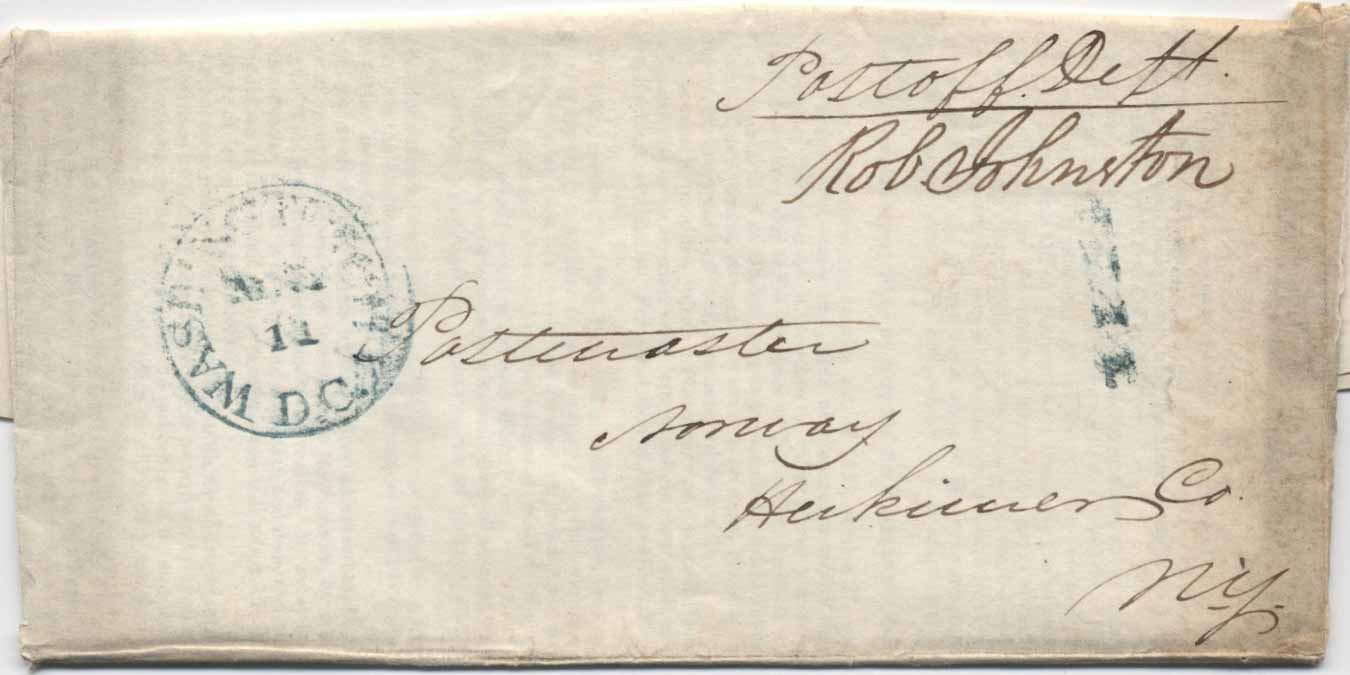 Postoff. Dept.
Rob Johnston
WASHINGTON CITY D.C.
11
Postmaster
Norway
Herkimer Co.
N.Y.